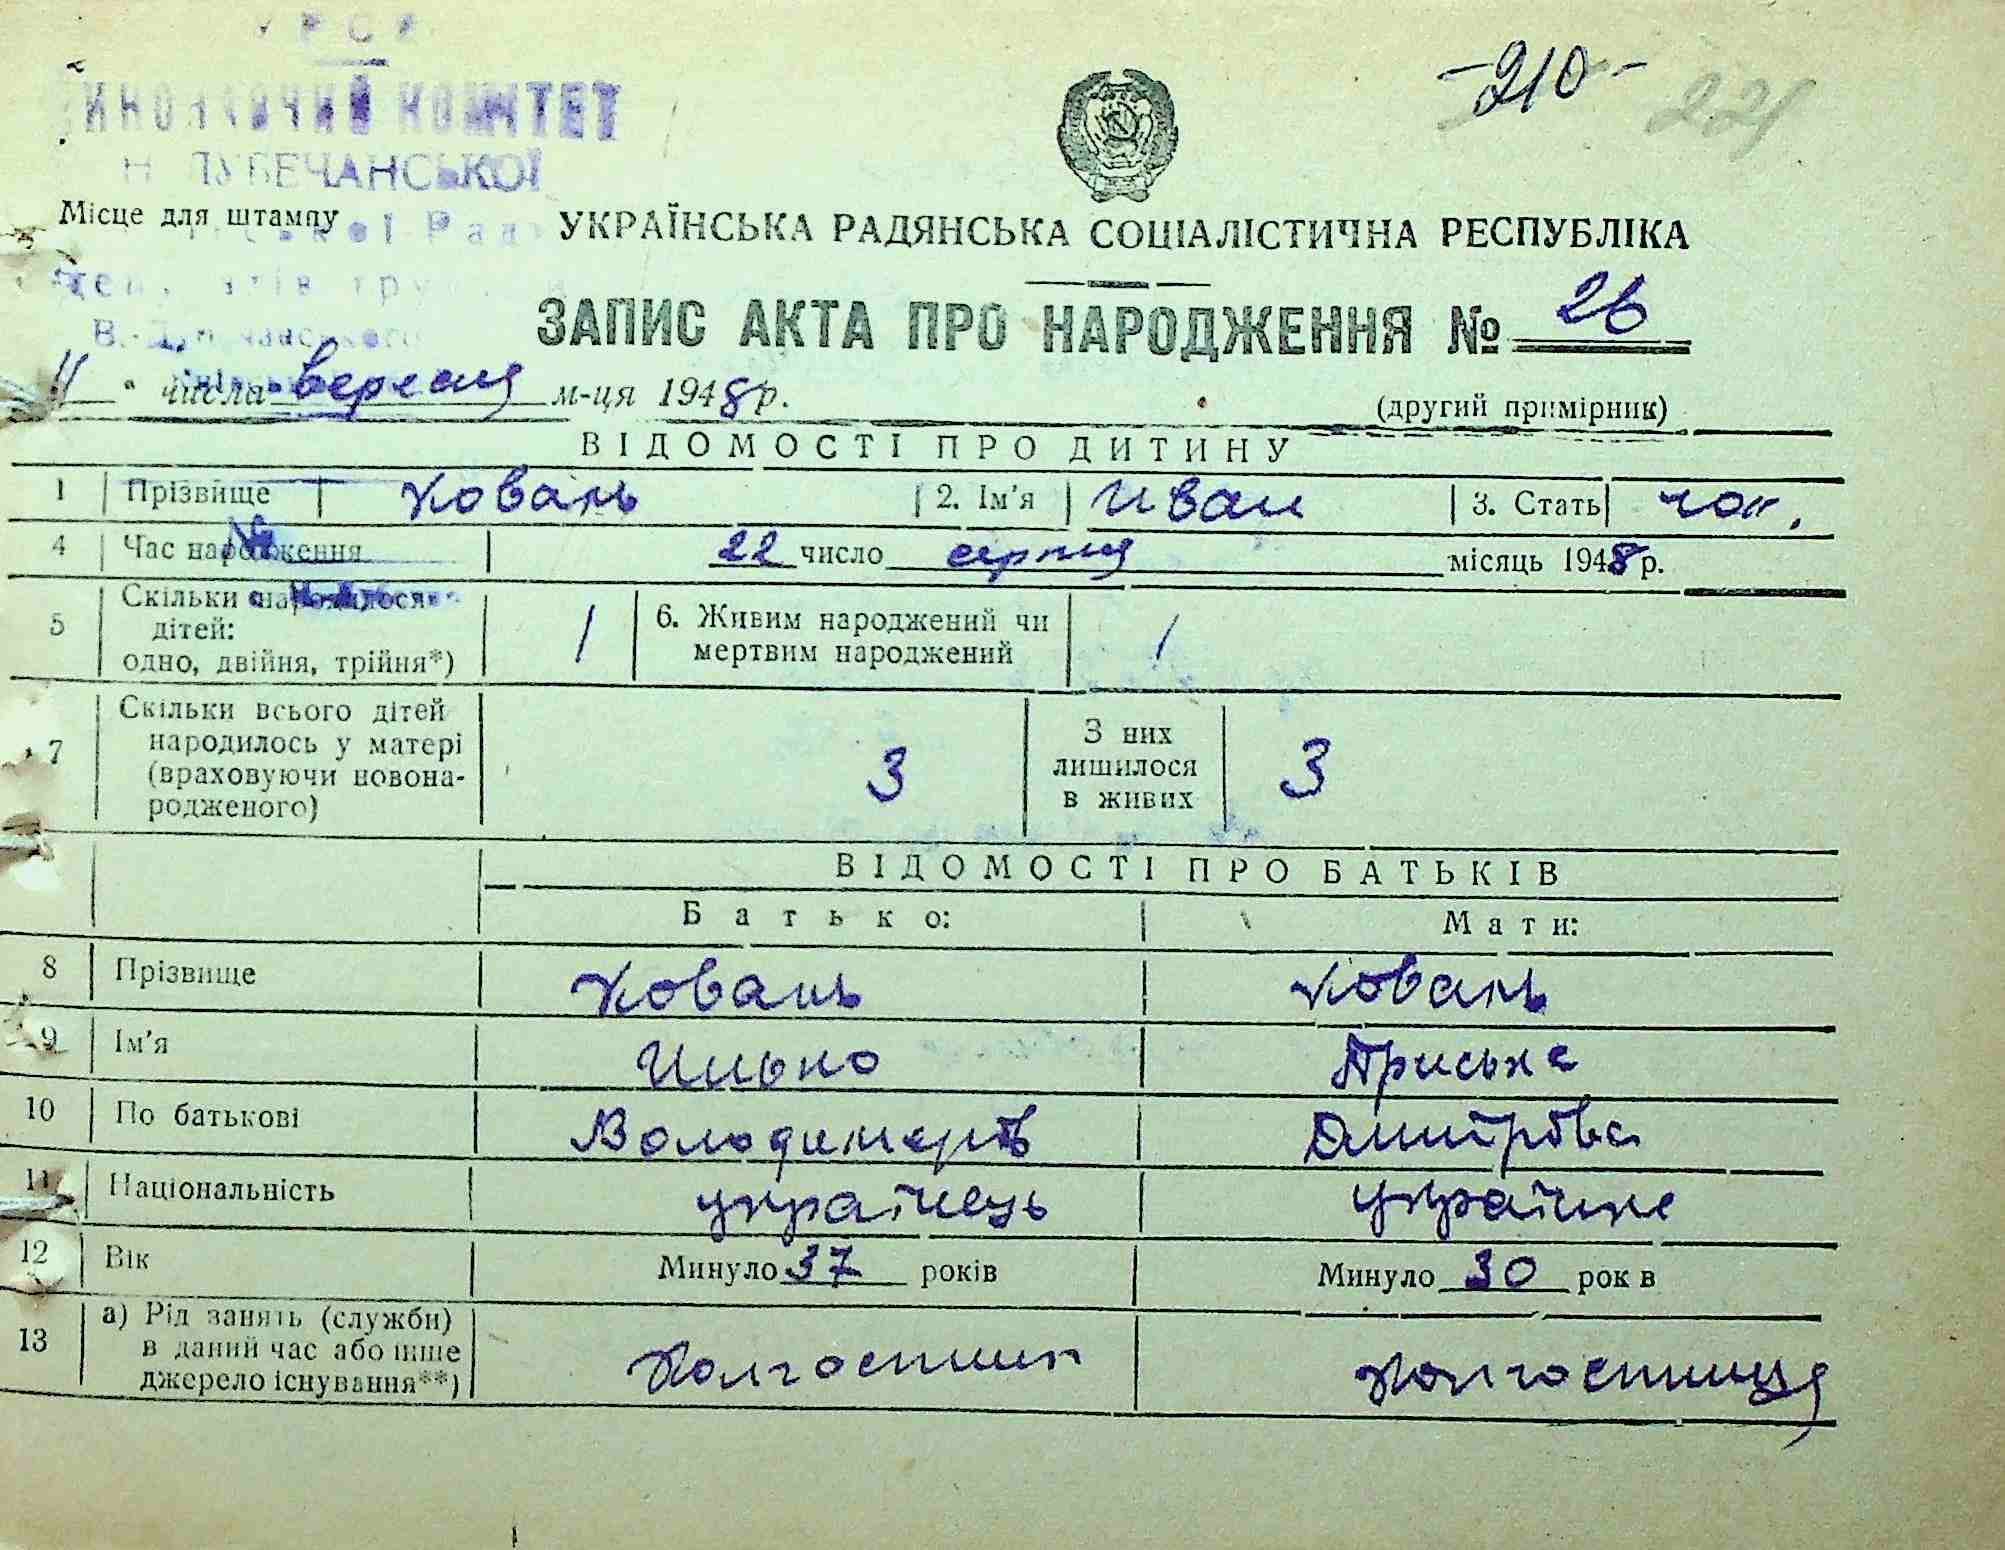 УРСР
-210-
221
ВИКОНАВЧИЙ КОМІТЕТ
Н ДУБЕЧАНСЬКОЇ
Місце для штампу
УКРАЇНСЬКА РАДЯНСЬКА СОЦІАЛІСТИЧНА РЕСПУБЛІКА
ЗАПИС АКТА ПРО НАРОДЖЕННЯ № 26
11 " числа вересня м-ця 1948 р.
(другий примірник)
ВІДОМОСТІ ПРО ДИТИНУ
1 Прізвище Ховань 2. Ім'я Иван 3. Стать чол.
4 Час народження 22 число серпня місяць 1948 р.
5 Скільки народилося дітей: одно, двійня, трійня*) 1 6. Живим народжений чи мертвим народжений 1
7 Скільки всього дітей народилось у матері (враховуючи новонародженого) 3 З них лишилося в живих 3
ВІДОМОСТІ ПРО БАТЬКІВ
Батько: Мати:
8 Прізвище Ховань Ховань
9 Ім'я Илько Приська
10 По батькові Володимерів Дмитрова
11 Національність українець українка
12 Вік Минуло 37 років Минуло 30 рок в
13 а) Рід занять (служби) в даний час або інше джерело існування**) Колгоспник Колгоспниця